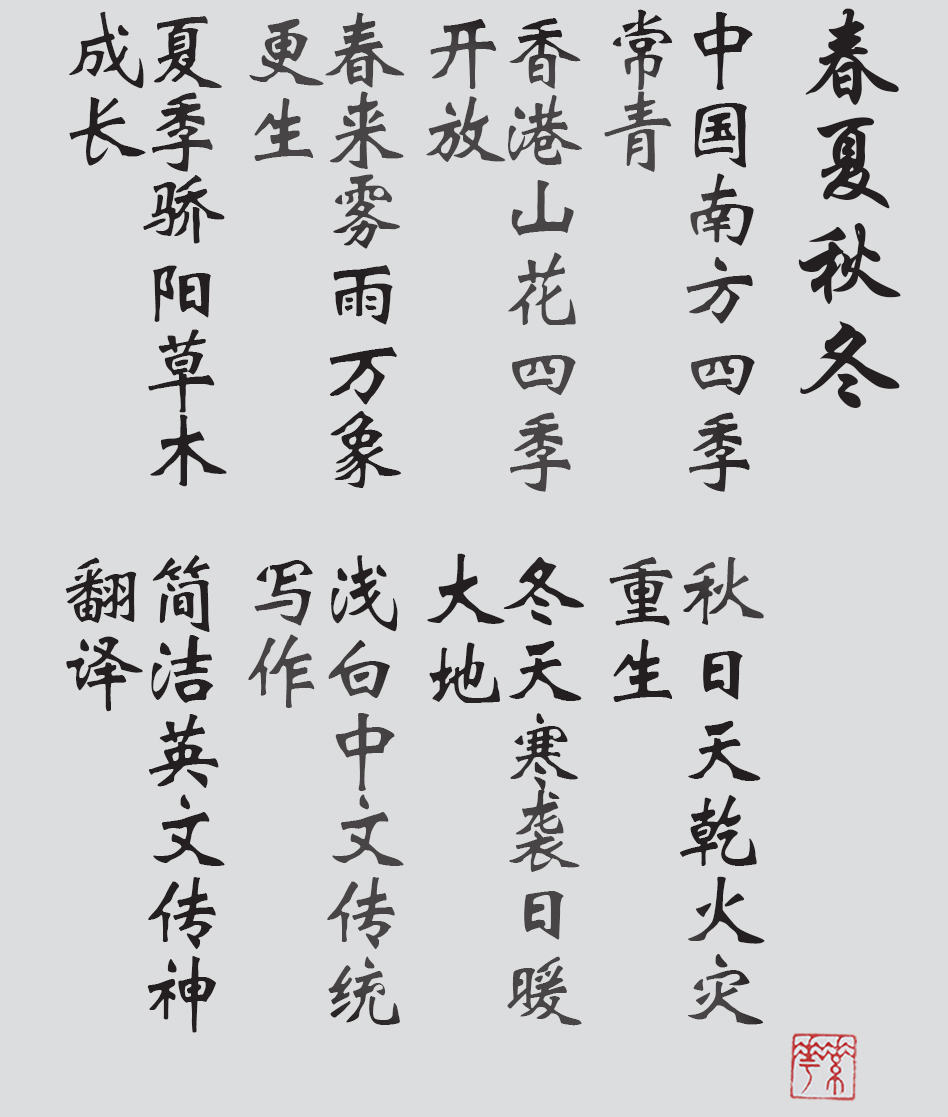 春夏秋冬
中国南方四季
常青
香港山花四季
开放
春来雾雨万象
更生
夏季骄阳草木
成长
秋日天乾火灾
重生
冬天寒袭日暖
大地
浅白中文传统
写作
简洁英文传神
翻译